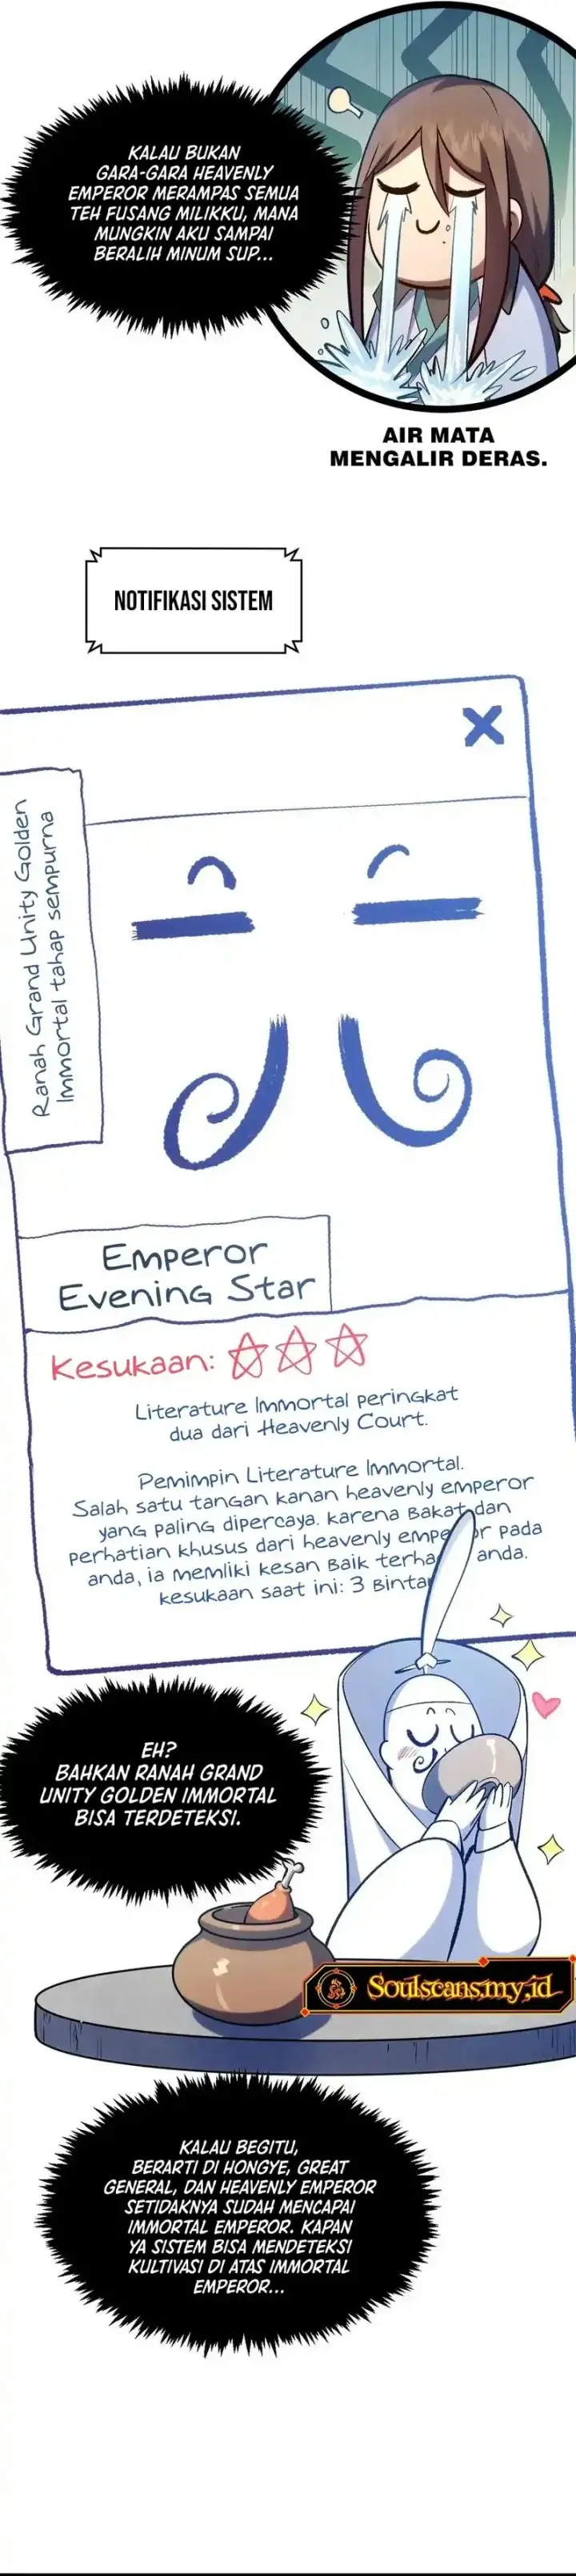 KALAU BUKAN
GARA-GARA HEAVENLY
EMPEROR MERAMPAS SEMUA
TEH FUSANG MILIKKU, MANA
MUNGKIN AKU SAMPAI
BERALIH MINUM SUP...
AIR MATA
MENGALIR DERAS.
NOTIFIKASI SISTEM
Ranah Grand Unity Golden
Immortal tahap sempurna
Emperor
Evening Star
Kesukaan:
Literature Immortal peringkat
dua dari Heavenly Court.
Pemimpin Literature Immortal.
Salah satu tangan kanan heavenly emperor
yang paling dipercaya. karena bakat dan
perhatian khusus dari heavenly emperor pada
anda, ia memliki kesan baik terha anda.
kesukaan saat ini: 3 Bintan
EH?
BAHKAN RANAH GRAND
UNITY GOLDEN IMMORTAL
BISA TERDETEKSI.
Soulscans.my.id
KALAU BEGITU,
BERARTI DI HONGYE, GREAT
GENERAL, DAN HEAVENLY EMPEROR
SETIDAKNYA SUDAH MENCAPAI
IMMORTAL EMPEROR. KAPAN
YA SISTEM BISA MENDETEKSI
KULTIVASI DI ATAS IMMORTAL
EMPEROR...